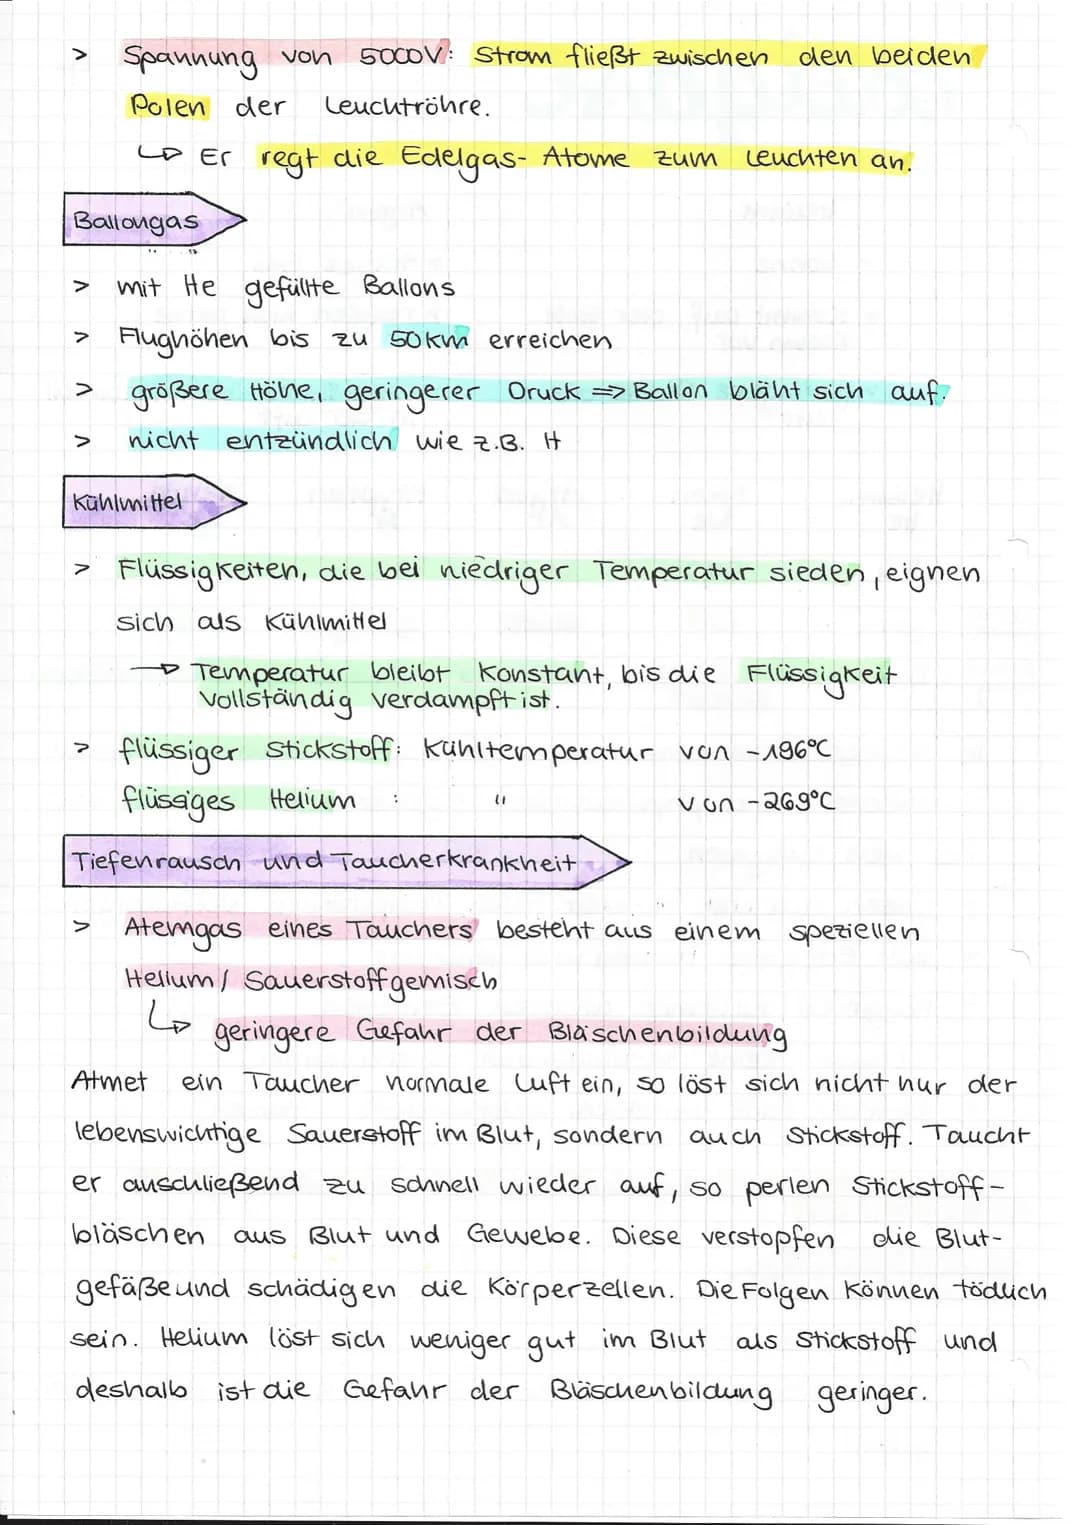 > Spannung von 5000V: Strom fließt zwischen den beiden
Polen der Leuchtröhre.
↳ Er regt die Edelgas-Atome zum Leuchten an.
Ballongas
> mit He gefüllte Ballons
> Flughöhen bis zu 50km erreichen
> größere Höhe, geringerer Druck => Ballon bläht sich auf.
> nicht entzündlich wie z.B. H
Kühlmittel
> Flüssigkeiten, die bei niedriger Temperatur sieden, eignen
sich als Kühlmittel
→ Temperatur bleibt konstant, bis die Flüssigkeit
vollständig verdampft ist.
> flüssiger Stickstoff: Kühltemperatur von -196°C
flüssiges Helium : " von -269°C
Tiefenrausch und Taucherkrankheit
> Atemgas eines Tauchers besteht aus einem speziellen
Helium/Sauerstoffgemisch
↳ geringere Gefahr der Bläschenbildung
Atmet ein Taucher normale Luft ein, so löst sich nicht nur der
lebenswichtige Sauerstoff im Blut, sondern auch Stickstoff. Taucht
er anschließend zu schnell wieder auf, so perlen Stickstoff-
bläschen aus Blut und Gewebe. Diese verstopfen die Blut-
gefäße und schädigen die Körperzellen. Die Folgen können tödlich
sein. Helium löst sich weniger gut im Blut als Stickstoff und
deshalb ist die Gefahr der Bläschenbildung geringer.